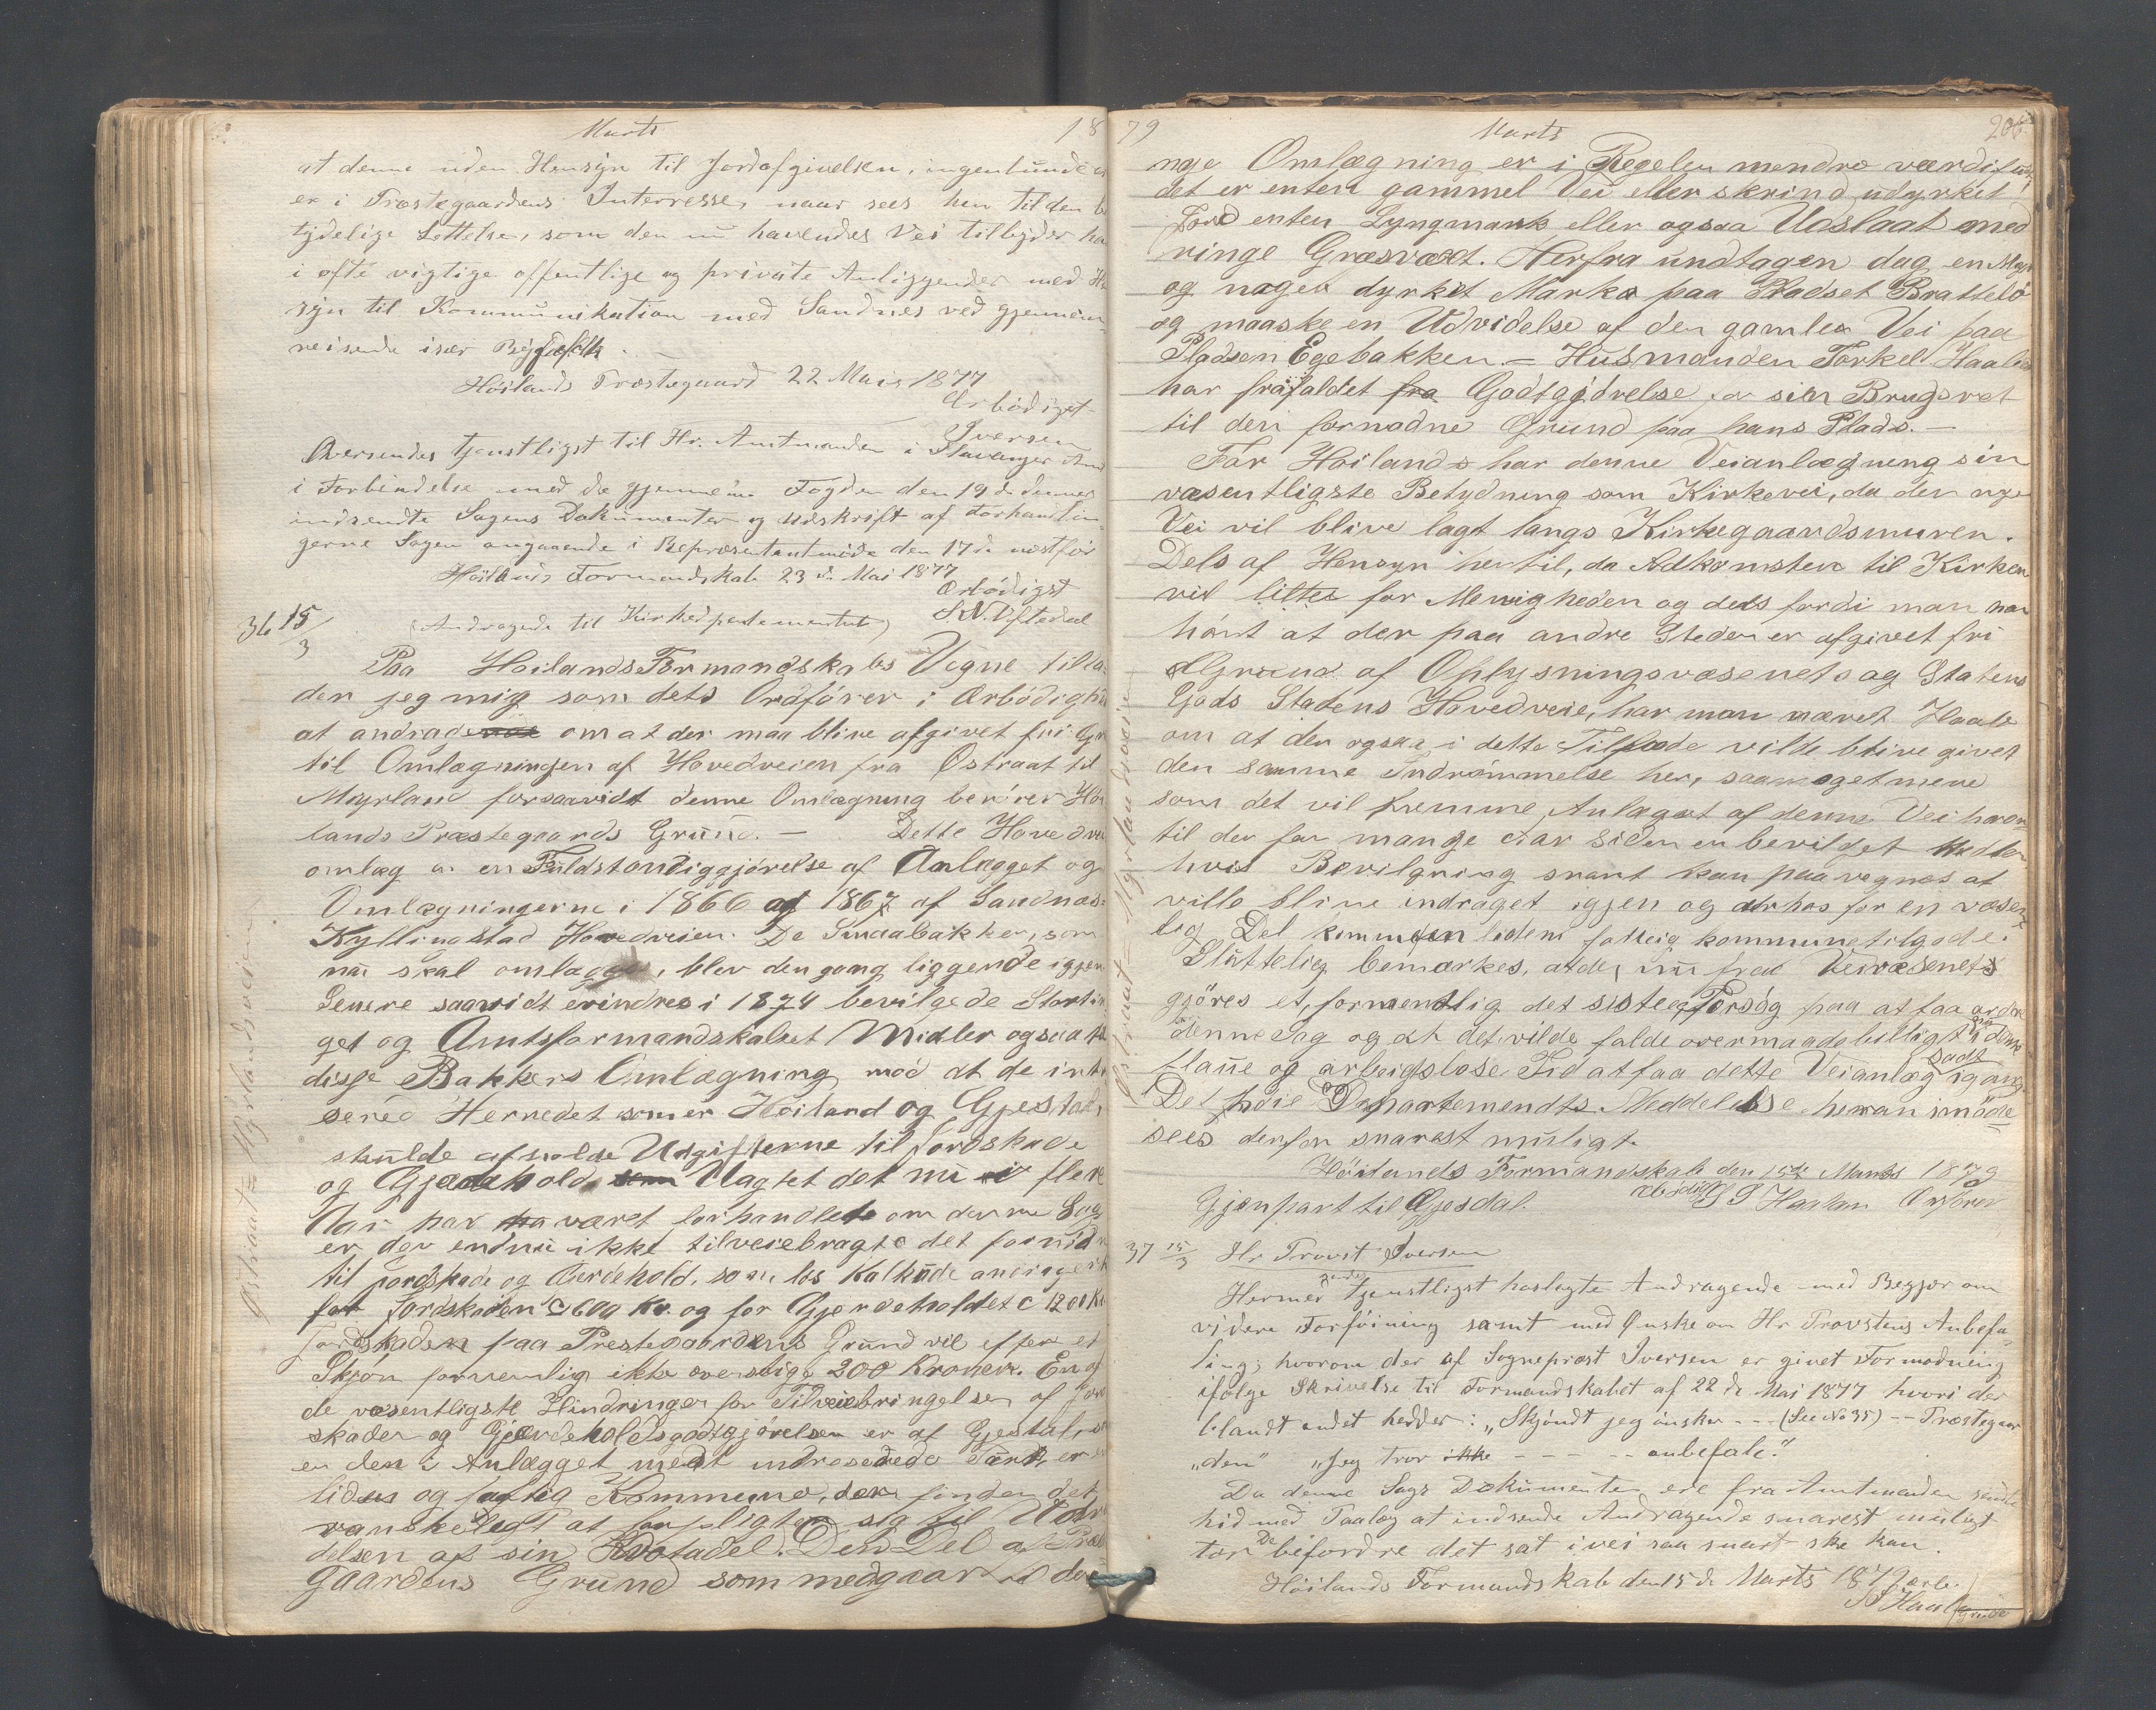 Marts 18
at denne uden Hensyn til Jordafgivelsen, ingenlunde
er i Præstegaardens Interesse, naar sees hen til den be
tydelige Lettelse, som den nu havendes Vei tilbyder ham
i ofte vigtige offentlige og private Anliggender med Hen
syn til Kommunikation med Sandnes ved gjennem-
reisende især
Höilands Præstegaard 22 Mais 1877
Ærbödigst
Iversen
Oversendes tjenstligst til Hr. Amtmanden i Stavanger Amt
i Forbindelse med de gjennem Fogden den 19de dennes
indsendte Sagens Dokumenter og Udskrift af Forhandlin-
gerne Sagen angaaende i Repræsentantmöde den 17de næstför
Höilands Formandskab 23de Mai 1877
Ærbödigst
36 15/3 (Andragende til Kirkedepartementet)
Paa Höilands Formandskabs Vegne tilla-
der jeg mig som dets Ordförer i Ærbödighed
at andrage om at der maa blive afgivet fri Gru
til Omlægningen af Hovedveien fra Østraat til
Myrland forsaavidt denne Omlægning berörer Höi
lands Præstegaards Grund. – Dette Hovedvei
omlæg er en Fuldstændiggjörelse af Anlægget og
Omlægningerne i 1866 og 1867 af Sandnæs-
Kyllingstad Hovedveien. De Smaabakker, som
nu skal omlægges, blev den gang liggende igjen
Senere saavidt erindres i 1874 bevilgede Stortin
get og Amtsformandskabet Midler ogsaa til
disse Bakkers Omlægning mod at de inte
serede Herredet som er Höiland og Gjesdal,
skulde afholde Udgifterne til Jordskade
og Gjærdehold Uagtet det nu i flere
Aar har været forhandlet om denne Sag
er der endnu ikke tilveiebragt det fornødne
til Jordskade og Gjærdehold, som
for Jordskaden c 600 Kr. og for Gjerdeholdet c 1200 Kr
Jordskaden paa Prestegaardens Grund vil efter et
Skjön formentlig ikke overstige 200 Kroner. En af
de væsentligste Hindringer for Tilveiebringelsen af Jord
skaden og Gjærdeholdsgodtgjörelsen er at Gjesdal, som
er den i Anlægget mest interesserede Part, er en
liden og fattig Kommune, der finder det
vanskeligt at forpligte sig til Udre
delsen af sin Kvotadel. Den Del af Præste
gaardens Grund som medgaar til den
Østraat = Myrlandsveien
79 Marts 206
nye Omlægning er i Regelen mendre værdifuld,
det er enten gammel Vei eller skrind udyrket
Jord enten Lyngmark eller ogsaa Udslaat med
ringe Græsvæxt. Herfra undtagen dog en Myr
og noget dyrket Marka paa Pladset Brattelö
og maaske en Udvidelse af den gamle Vei paa
Pladsen Egebakken – Husmanden Torkel Haaland
har frafaldet Godtgjörelse for sin Brugsret
til den fornødne Grund paa hans Plads. –
For Höilands har denne Veianlægning sin
væsentligste Betydning som Kirkevei, da den nye
Vei vil blive lagt langs Kirkegaardsmuren.
Dels af Hensyn hertil, da Adkomsten til Kirken
vil lettes for Menigheden og dels fordi man har
hört at der paa andre Steder er afgivet fri
Grund af Oplysningsvæsenets og Statens
Gods Statens Hovedveie, har man været Haab
om at der ogsaa i dette Tilfælde vilde blive givet
den samme Indrömmelse her, saameget mere
som det vil fremme Anlæget af denne Vei hvor-
til der for mange Aar siden er bevilget Midler
hvis Bevilgning snart kan paaregnes at
ville blive indraget igjen og
lig Del kommen liden fattig kommune tilgode.
Sluttelig bemærkes, at der nu fra Veivæsenets
gjöres et, formentlig det sidste Forsög paa at faa
denne Sag og at det vilde falde overmaade billigt i denne
flaue og arbeidslöse Tid at faa dette Veianlæg igang
Det höie Departementets Meddelelse heran imöde
sees derfor snarest muligt.
Höilands Formandskab den 15de Marts 1879
Gjenpart til Gjesdal. ærbödigst Haaland Ordförer
Østraat – Myrlandsveien
37 15/3 Hr Provst Iversen
Hermed sendes tjenstligst hoslagte Andragende med Begjær om
videre Forföining samt med Önske om Hr Provstens Anbefa-
ling, hvorom der af Sogneprest Iversen er givet Formodning
ifölge Skrivelse til Formandskabet af 22de Mai 1877 hvori det
blandt andet hedder: „Skjöndt jeg önsker --- (See No 35) -- Præstegaar
„den" „Jeg tror ikke - - - anbefale."
Da denne Sags Dokumenter ere fra Amtmanden sendt
hid med Paalæg at indsende Andragende snarest muligt
tör De befordre det sat i vei saa snart ske kan.
Höilands Formandskab den 15de Marts 1879 ærb.